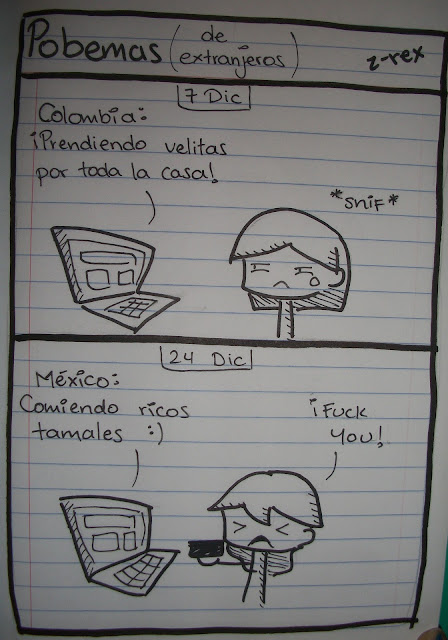 Pobemas (de
extranjeros)
z-rex
7 Dic
Colombia:
¡Prendiendo velitas
por toda la casa!
*snif*
24 Dic
México:
Comiendo ricos
tamales :)
¡Fuck
you!